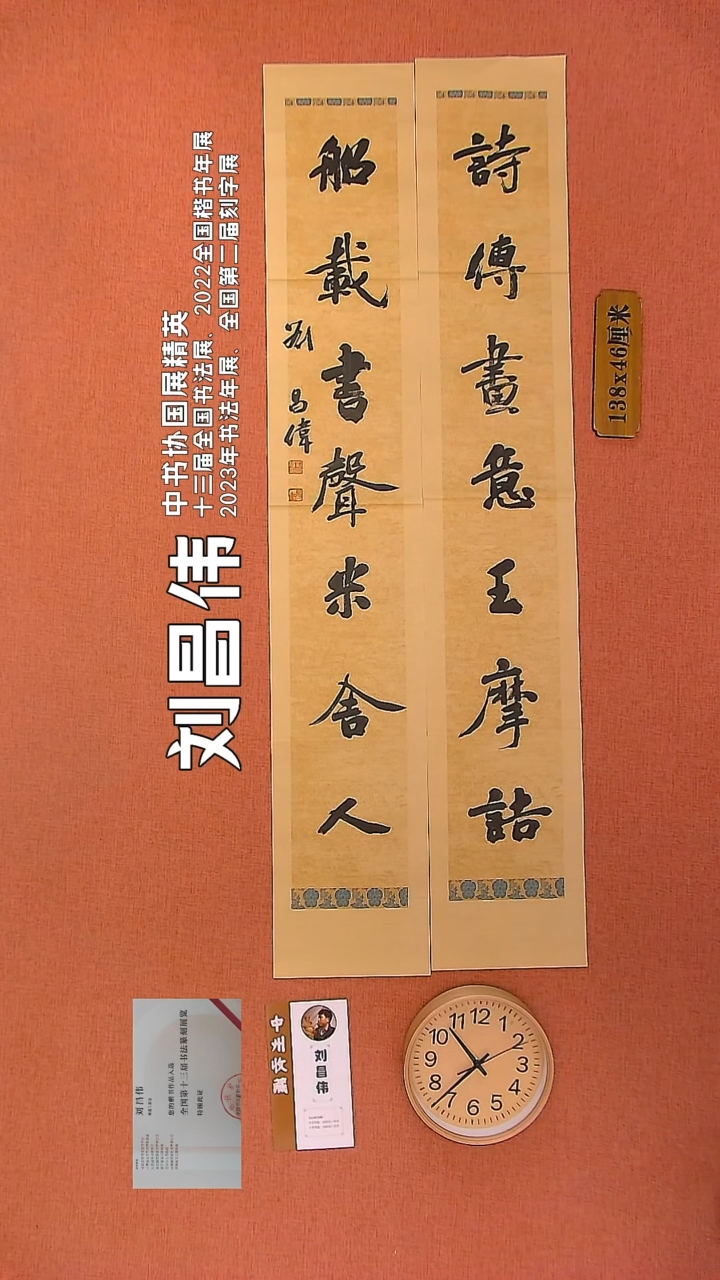 詩傳畫意王摩詰
船載書聲米舍人
劉昌偉
138x46厘米
刘昌伟
中书协国展精英
十三届全国书法展、2022全国楷书年展
2023年书法年展、全国第二届刻字展
刘昌伟
您的楷书作品入选
全国第十三届书法篆刻展览
特颁此证
刘昌伟
12
1
2
3
4
5
6
7
8
9
10
11